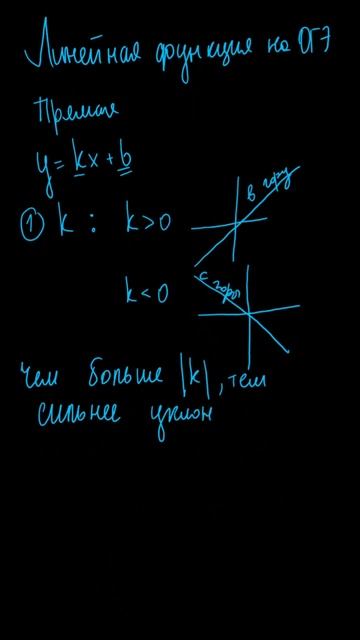 Линейная функция на ОГЭ
Прямая
y = kx + b
① k : k > 0
в гору
k < 0
с горы
Чем больше |k|, тем
сильнее уклон